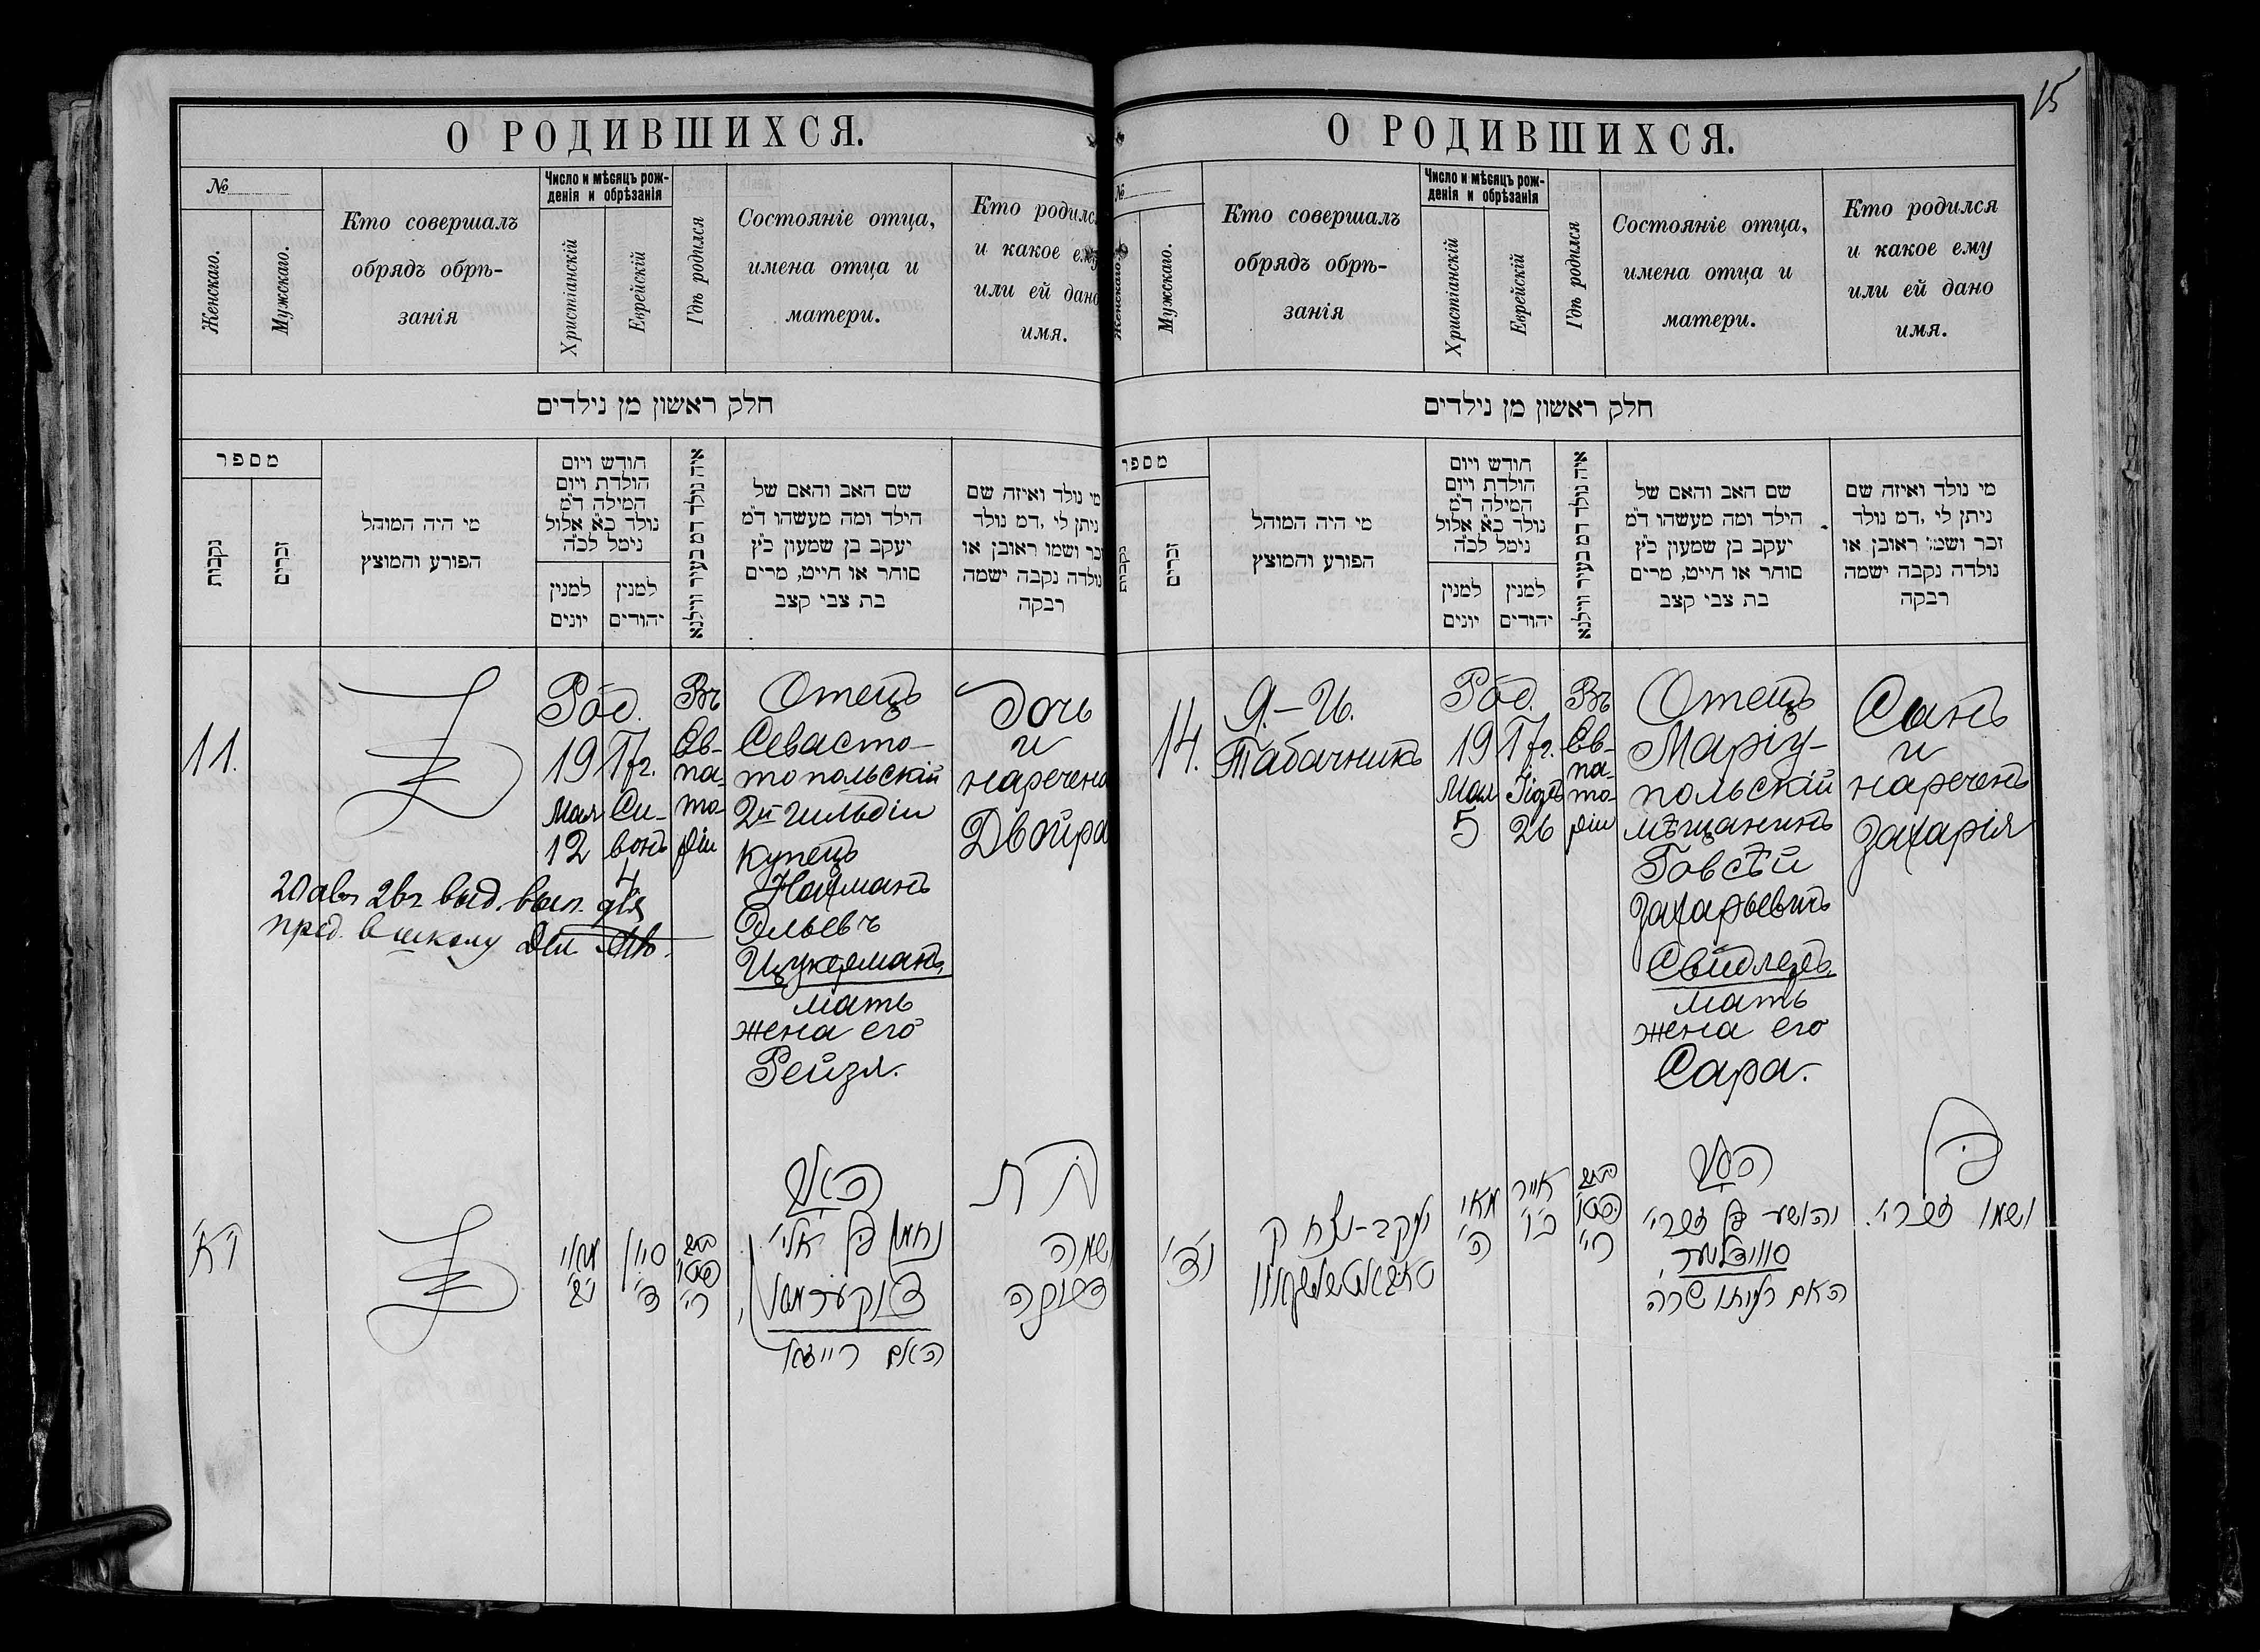 О РОДИВШИХСЯ.
№
Женскаго.
Мужскаго.
Кто совершалъ
обрядъ обрѣ-
занія
Число и мѣсяцъ рож-
денія и обрѣзанія
Христіанскій
Еврейскій
Годъ родился
Состояніе отца,
имена отца и
матери.
Кто родился
и какое ему
или ей дано
имя.
חלק ראשון מן נילדים
מספר
נקבות
זכרים
מי היה המוהל
הפורע והמוצץ
חודש ויום
הולדת ויום
המילה ד"מ
נולד כ"א אלול
נימל לכ"ה
למנין
יונים
למנין
יהודים
איה נולד דם בעיר ווילנא
שם האב והאם של
הילד ומה מעשהו ד"מ
יעקב בן שמעון כ"ץ
סוחר או חייט, מרים
בת צבי קצב
מי נולד ואיזה שם
ניתן לי ,דמ נולד
זכר ושמו ראובן או
נולדה נקבה ישמה
רבקה
11.
Род.
1917г.
Мая
12
Си-
вонъ
4
Въ
Ев-
па-
то-
ріи
Отецъ
Севасто-
топольскій
2й гильдіи
купецъ
Нахманъ
Эльевъ
Цукерманъ,
мать
жена его
Рейзя.
Дочь
и
наречена
Двойра
20 авг 2вг выд. вып. для
пред. в школу
י"א
מאי
י"ב
סיון
ד'
האב
נחמן בן אלי'
צוקערמאן
האם רייזאל
בת
ושמה
דבורה
15
О РОДИВШИХСЯ.
№
Женскаго.
Мужскаго.
Кто совершалъ
обрядъ обрѣ-
занія
Число и мѣсяцъ рож-
денія и обрѣзанія
Христіанскій
Еврейскій
Годъ родился
Состояніе отца,
имена отца и
матери.
Кто родился
и какое ему
или ей дано
имя.
חלק ראשון מן נילדים
מספר
נקבות
זכרים
מי היה המוהל
הפורע והמוצץ
חודש ויום
הולדת ויום
המילה ד"מ
נולד כ"א אלול
נימל לכ"ה
למנין
יונים
למנין
יהודים
איה נולד דם בעיר ווילנא
שם האב והאם של
הילד ומה מעשהו ד"מ
יעקב בן שמעון כ"ץ
סוחר או חייט, מרים
בת צבי קצב
מי נולד ואיזה שם
ניתן לי ,דמ נולד
זכר ושמו ראובן או
נולדה נקבה ישמה
רבקה
14.
Я.-И.
Табачникъ
Род.
1917г.
Мая
5
26
Въ
Ев-
па-
то-
ріи
Отецъ
Маріу-
польскій
мѣщанинъ
Говсѣй
Захарьевичъ
Свидлеръ.
мать
жена его
Сара.
Сынъ
и
нареченъ
Захарія
י"ד
יעקב-יצחק
מאי
ה'
אייר
כ"ו
האב
יהושע בן זכרי'
סווידלער,
האם חיותו שרה
בן
ושמו זכרי'.